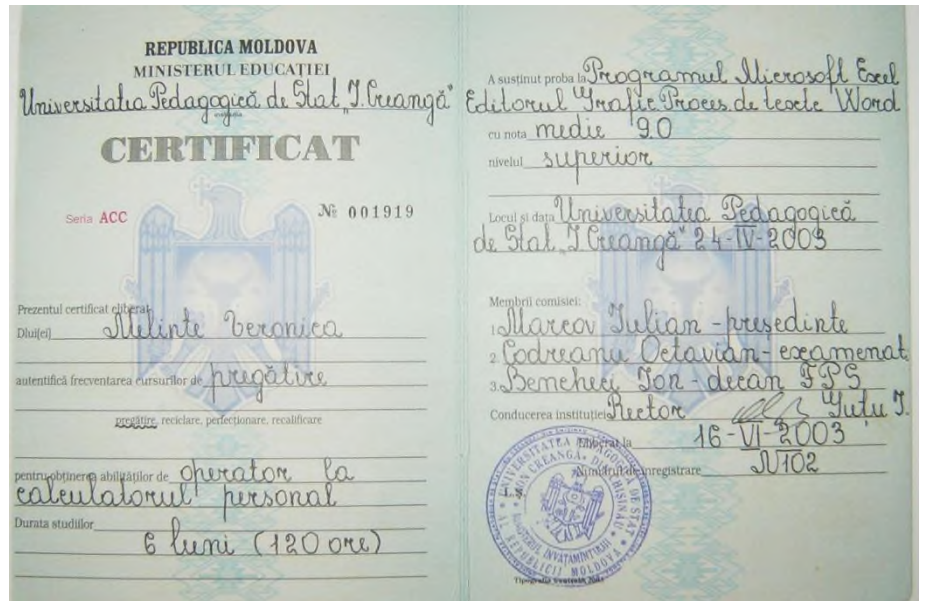 REPUBLICA MOLDOVA
MINISTERUL EDUCAȚIEI
Universitatea Pedagogică de Stat „I. Creangă"
CERTIFICAT
Seria ACC № 001919
Prezentul certificat eliberat
Dlui(ei) Melinte Veronica
autentifică frecventarea cursurilor de pregătire
pregătire, reciclare, perfecționare, recalificare
pentru obținerea abilităților de operator la
calculatorul personal
Durata studiilor
6 luni (120 ore)
A susținut proba la Programul Microsoft Excel
Editorul Grafic Proces. de texte Word
cu nota medie 9.0
nivelul superior
Locul și data Universitatea Pedagogică
de Stat „I. Creangă" 24-IV-2003
Membrii comisiei:
1. Marcov Iulian - președinte
2. Codreanu Octavian - examenat.
3. Bencheci Ion - decan FPS
Conducerea instituției Rector Guțu I.
Eliberat la 16-VI-2003
Numărul de înregistrare N102
UNIVERSITATEA PEDAGOGICĂ DE STAT
ION CREANGĂ DIN CHIȘINĂU
MINISTERUL ÎNVĂȚĂMÎNTULUI
AL REPUBLICII MOLDOVA